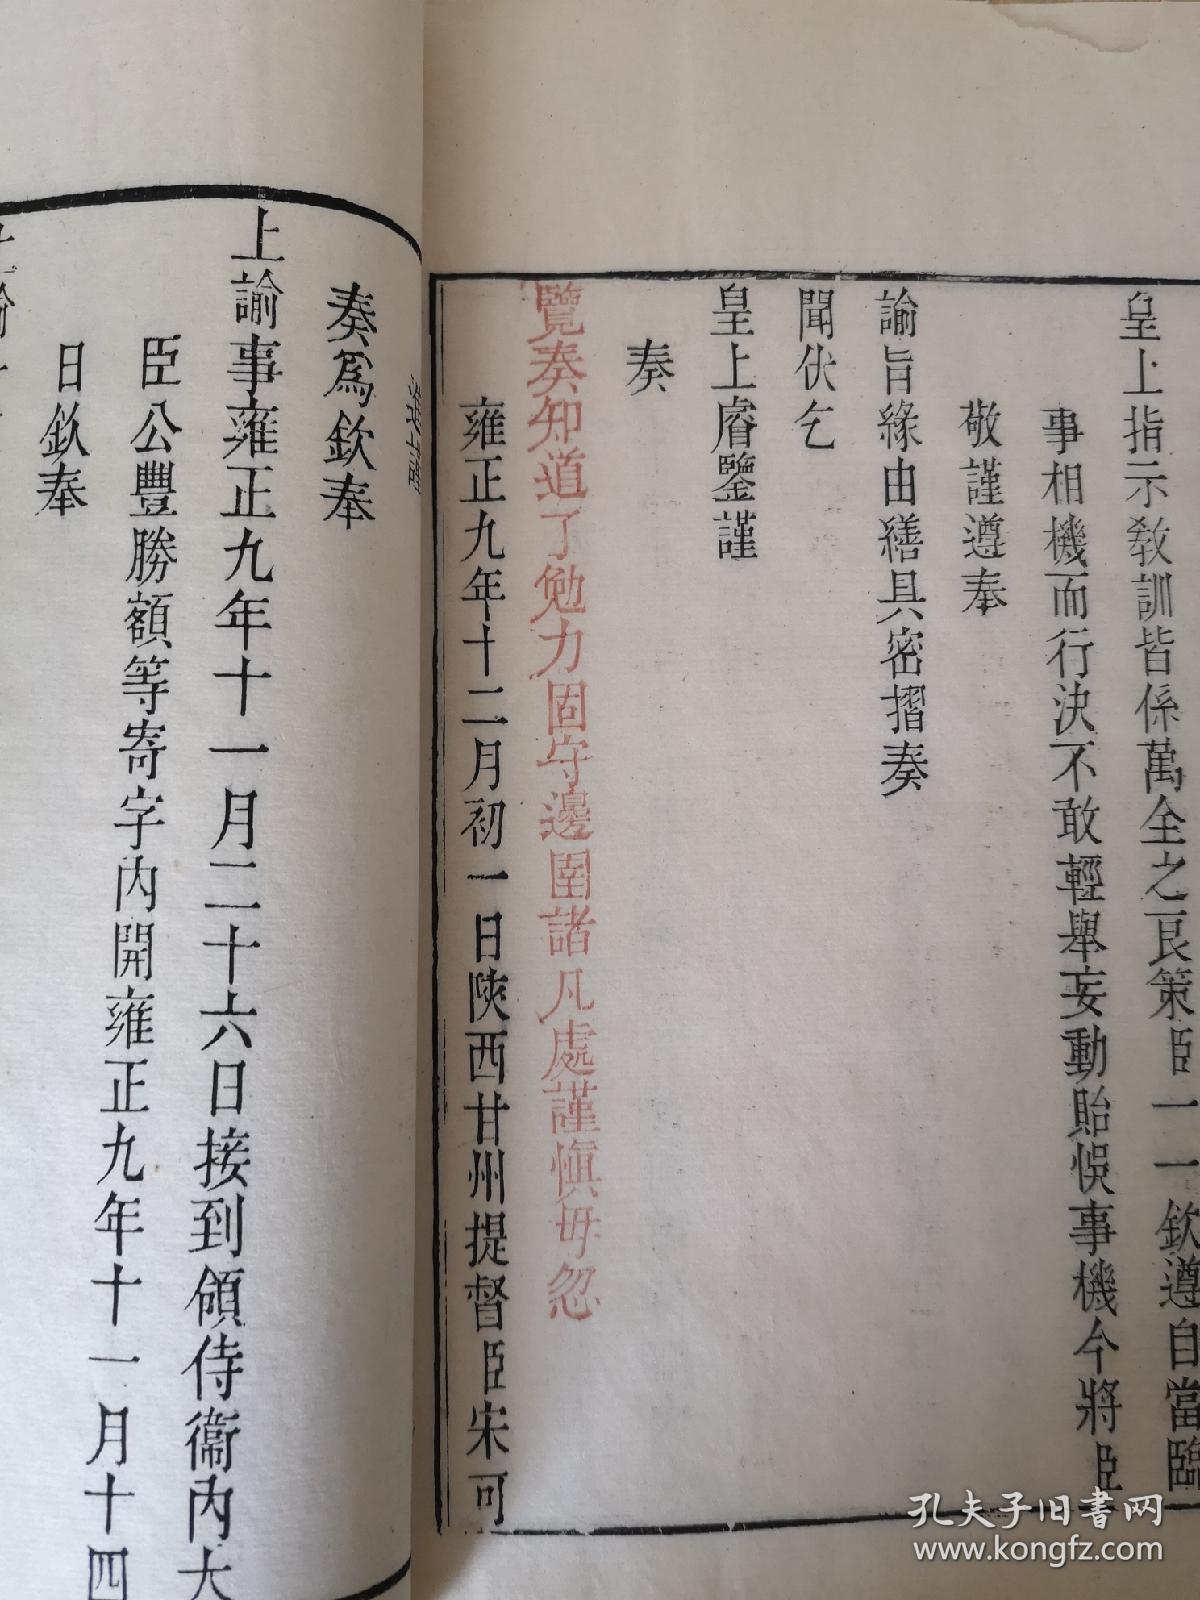 皇上指示教訓皆係萬全之良策臣一一欽遵自當臨
事相機而行決不敢輕舉妄動貽悞事機今將臣
敬謹遵奉
諭旨緣由繕具密摺奏
聞伏乞
皇上睿鑒謹
奏
覽奏知道了勉力固守邊圉諸凡處謹慎毋忽
雍正九年十二月初一日陝西甘州提督臣宋可
奏爲欽奉
上諭事雍正九年十一月二十六日接到領侍衞內大
臣公豐勝額等寄字內開雍正九年十一月十四
日欽奉
孔夫子旧书网
www.kongfz.com